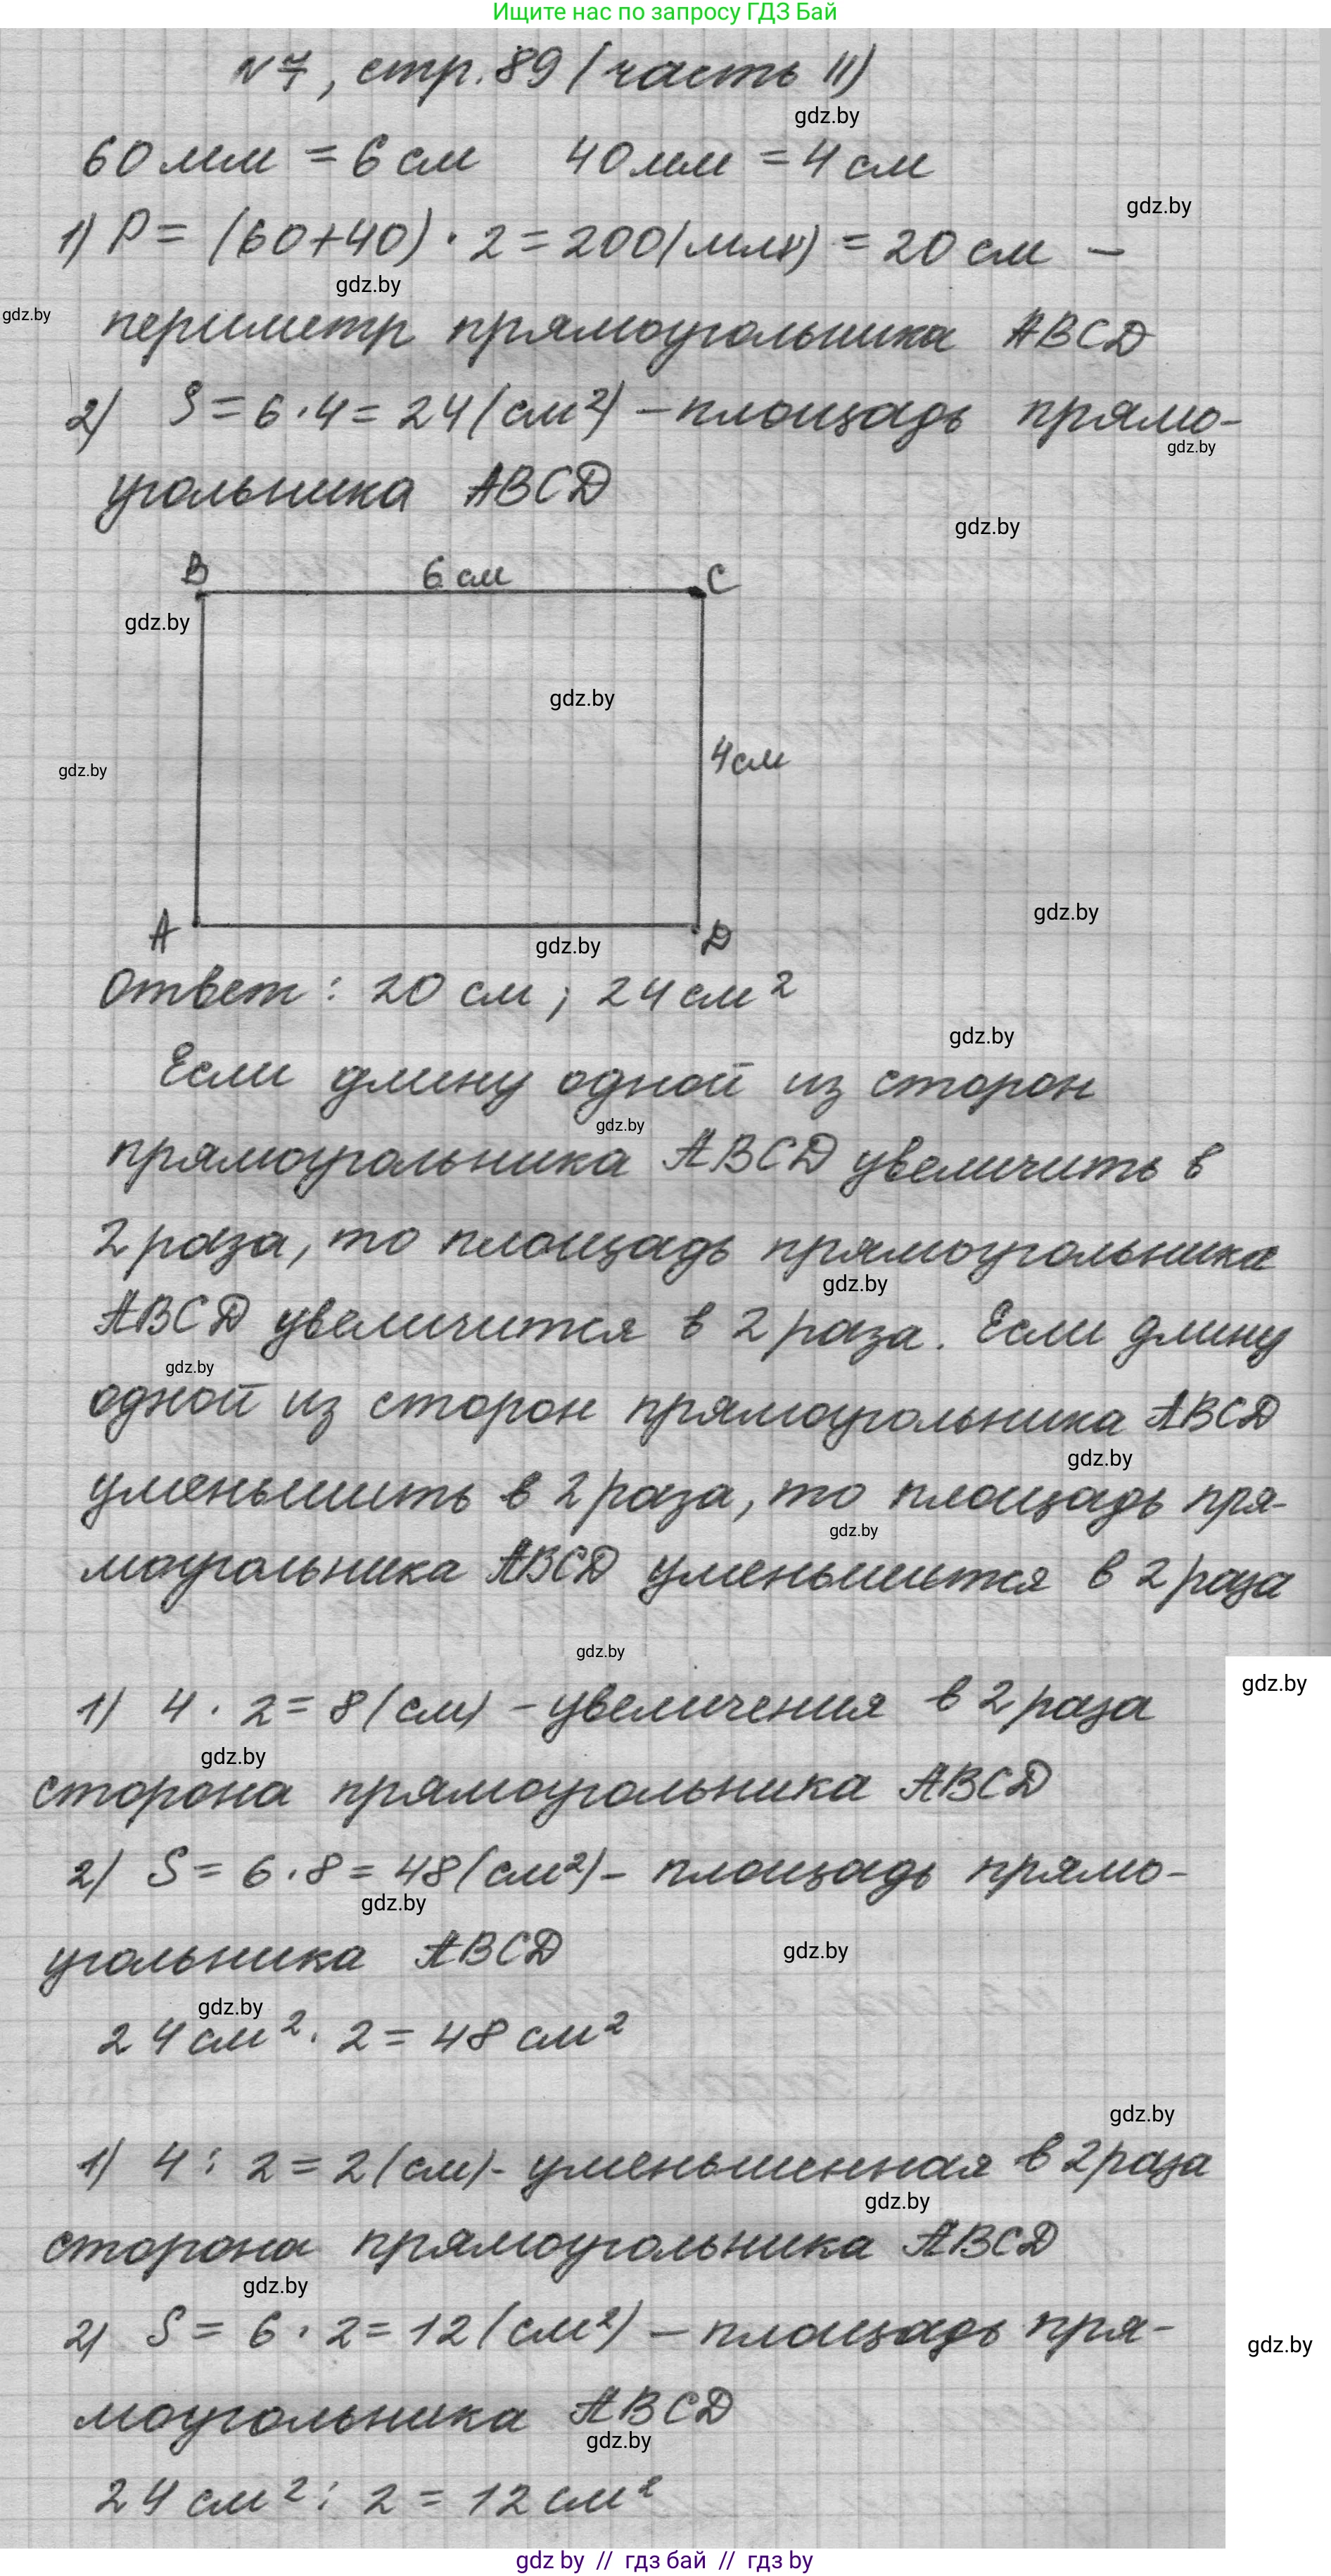 Ищите нас по запросу ГДЗ Бай
№7, стр. 89 (часть II)
gdz.by
60 мм = 6 см 40 мм = 4 см
gdz.by
1) P = (60+40) · 2 = 200 (мм) = 20 см –
gdz.by
gdz.by
периметр прямоугольника ABCD
2) S = 6 · 4 = 24 (см²) – площадь прямо-
gdz.by
угольника ABCD
gdz.by
B 6 см C
gdz.by
gdz.by
4 см
gdz.by
gdz.by
A D
gdz.by
Ответ: 20 см; 24 см²
gdz.by
Если длину одной из сторон
gdz.by
прямоугольника ABCD увеличить в
2 раза, то площадь прямоугольника
gdz.by
ABCD увеличится в 2 раза. Если длину
gdz.by
одной из сторон прямоугольника ABCD
gdz.by
уменьшить в 2 раза, то площадь пря-
gdz.by
моугольника ABCD уменьшится в 2 раза
gdz.by
gdz.by
1) 4 · 2 = 8 (см) – увеличения в 2 раза
gdz.by
сторона прямоугольника ABCD
2) S = 6 · 8 = 48 (см²) – площадь прямо-
gdz.by
угольника ABCD
gdz.by
gdz.by
24 см² · 2 = 48 см²
gdz.by
1) 4 : 2 = 2 (см) - уменьшенная в 2 раза
gdz.by
сторона прямоугольника ABCD
gdz.by
2) S = 6 · 2 = 12 (см²) – площадь пря-
gdz.by
моугольника ABCD
gdz.by
24 см² : 2 = 12 см²
gdz by // гдз бай // гдз by